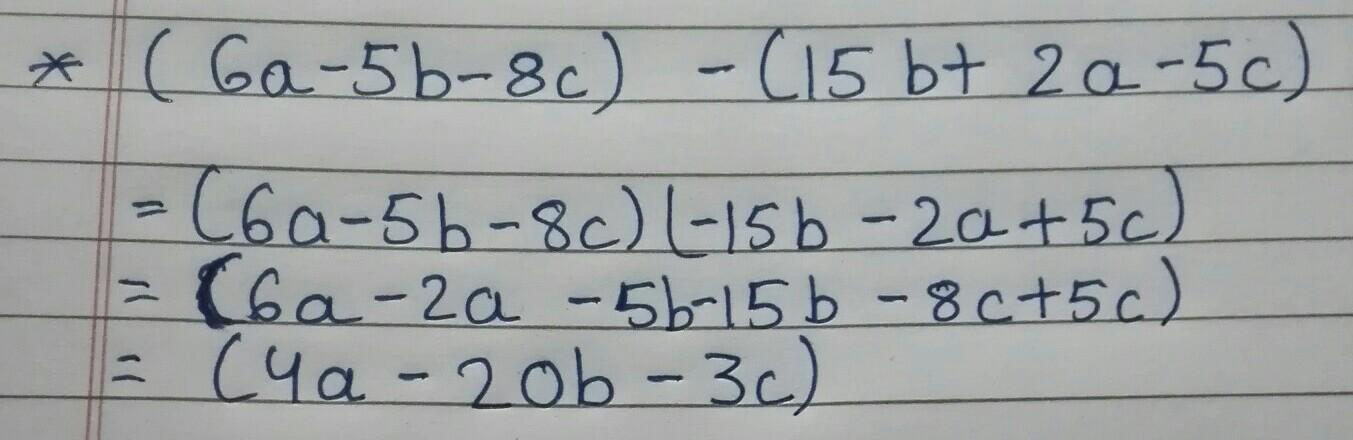 * (6a-5b-8c) -(15b+ 2a-5c)
=(6a-5b-8c)(-15b-2a+5c)
= (6a-2a -5b-15b-8c+5c)
= (4a-20b-3c)